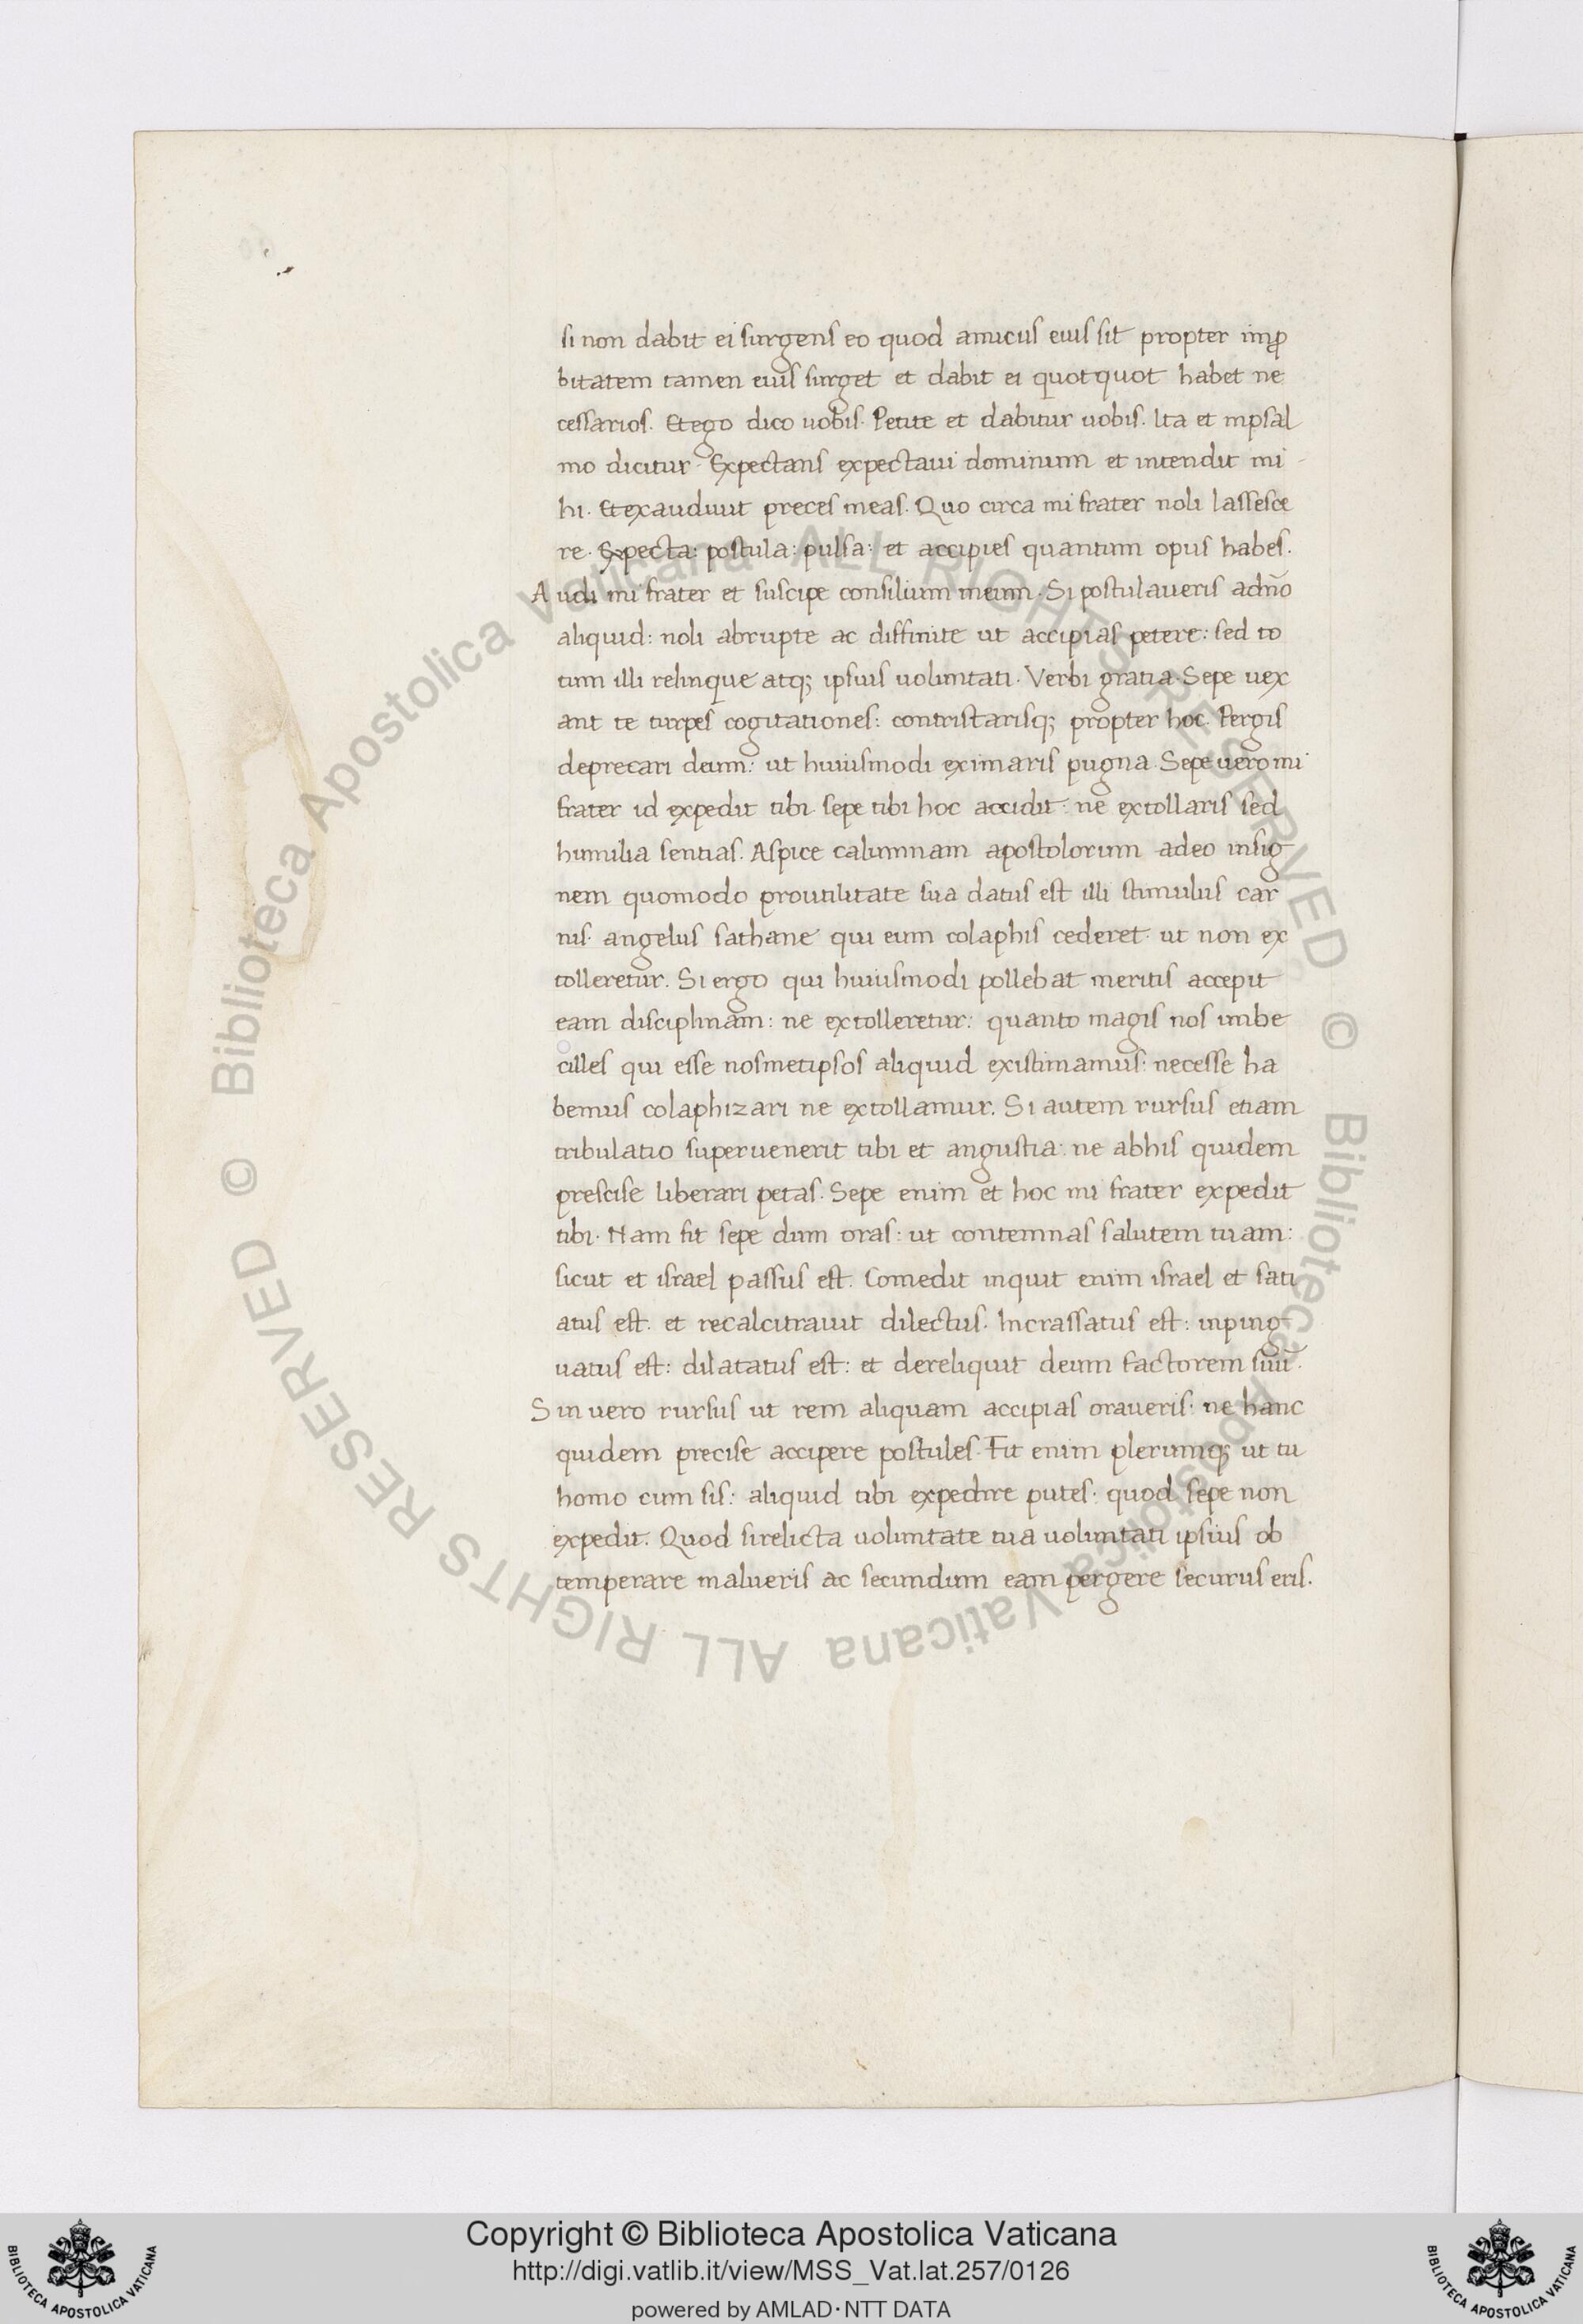 si non dabit ei surgens eo quod amicus eius sit propter impꝛo
bitatem tamen eius surget et dabit ei quotquot habet ne
cessarios. Et ego dico uobis. Petite et dabitur uobis. Ita et in psal
mo dicitur. Expectans expectaui dominum et intendit mi
hi. Et exaudiuit preces meas. Quo circa mi frater noli lassesce
re. Expecta: postula: pulsa: et accipies quantum opus habes.
Audi mi frater et suscipe consilium meum. Si postulaueris a dn̄o
aliquid: noli abrupte ac diffinite ut accipias petere: sed to
tum illi relinque atq; ipsius uoluntati. Verbi gratia. Sepe uex
ant te turpes cogitationes: contristarisq; propter hoc. Pergis
deprecari deum: ut huiusmodi eximaris pugna. Sepe uero mi
frater id expedit tibi. sepe tibi hoc accidit: ne extollaris sed
humilia sentias. Aspice calumnam apostolorum adeo insig
nem quomodo pro utilitate sua datus est illi stimulus car
nis. angelus sathane qui eum colaphis cederet. ut non ex
tolleretur. Si ergo qui huiusmodi pollebat meritis accepit
eam disciplinam: ne extolleretur: quanto magis nos imbe
cilles qui esse nosmetipsos aliquid existimamus: necesse ha
bemus colaphizari ne extollamur. Si autem rursus etiam
tribulatio superuenerit tibi et angustia: ne ab his quidem
prescise liberari petas. Sepe enim et hoc mi frater expedit
tibi. Nam fit sepe dum oras: ut contemnas salutem tuam:
sicut et israel passus est. Comedit inquit enim israel et sati
atus est. et recalcitrauit dilectus. Incrassatus est: inping
uatus est: dilatatus est: et dereliquit deum factorem suū.
Sin uero rursus ut rem aliquam accipias oraueris: ne hanc
quidem precise accipere postules. Fit enim plerumq; ut tu
homo cum sis: aliquid tibi expedire putes: quod sepe non
expedit. Quod si relicta uoluntate tua uoluntati ipsius ob
temperare malueris ac secundum eam pergere securus eris.
© Biblioteca Apostolica Vaticana ALL RIGHTS RESERVED
© Biblioteca Apostolica Vaticana ALL RIGHTS RESERVED
Copyright © Biblioteca Apostolica Vaticana
http://digi.vatlib.it/view/MSS_Vat.lat.257/0126
powered by AMLAD·NTT DATA
BIBLIOTECA APOSTOLICA VATICANA
BIBLIOTECA APOSTOLICA VATICANA